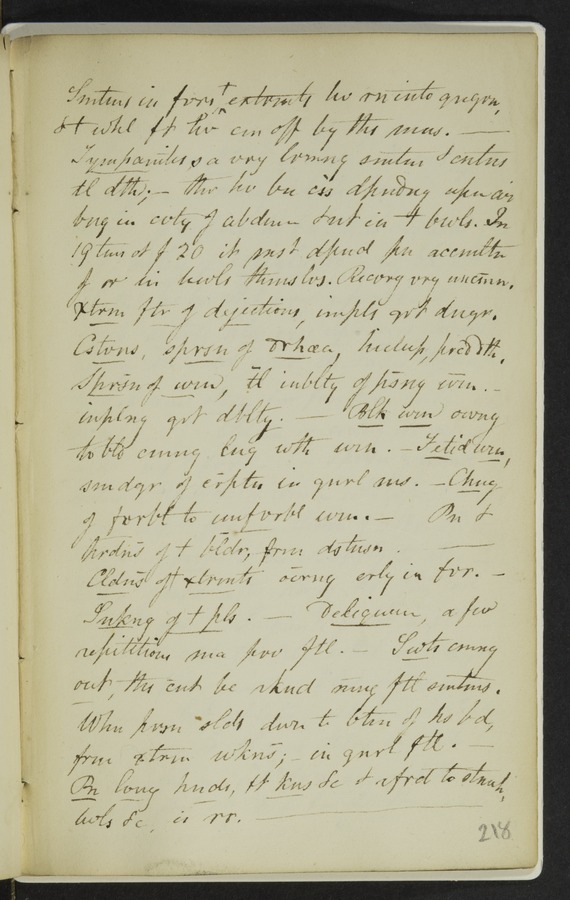 in fevrs, t extrmts hv rn into gngrn,
& t whl ft hv cm off by ths mns. —
Tympanites, s a vry lrmng smtm & cntns
tl dth; — ths hv bn css dpndng upn air
bng in cvty f abdmn & nt in t bwls. In
19 tms ot f 20 it mst dpnd pn accmltn
f or in bwls thmslvs. Recvry vry uncmn.
Xtrm ftr f dejections, impls grt dngr.
Cstvns, sprsn of Drhœa, hiccup, prcd dth.
Sprsn f urn, tl inblty of psng urn. —
implng grt dblty. — Blk urn owng
to bld cmng lng wth urn. — Fetid urn,
in gnrl ms. — Chng
f fvrbl to unfvrbl urn. — Pn &
hrdns f t bldr, frm dstnsn. —
Cldns f t xtrmts ocrng erly in fvr. —
Snkng f t pls. — Deliquium, a few
repititions ma prv ftl. — Swts cmng
out, ths cnt be rknd mng ftl smtms.
Whn prsn slds dwn to btm of hs bd,
frm xtrm wkns; — in gnrl ftl. —
Pn lvng hnds, ft kns &c & afrd to stmch,
bwls &c, is
218